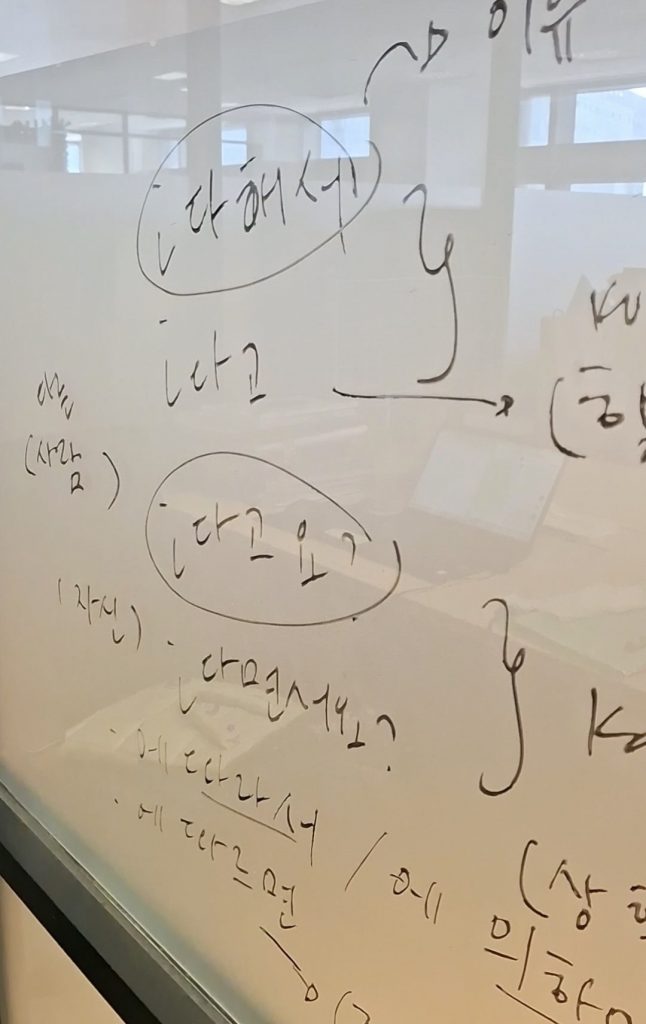 이유
ㄴ다해서
ㄴ다고
(사람)
ㄴ다고요?
(자신)
ㄴ다면서요?
에 따라서
에 따르면 / 에
의하
(상